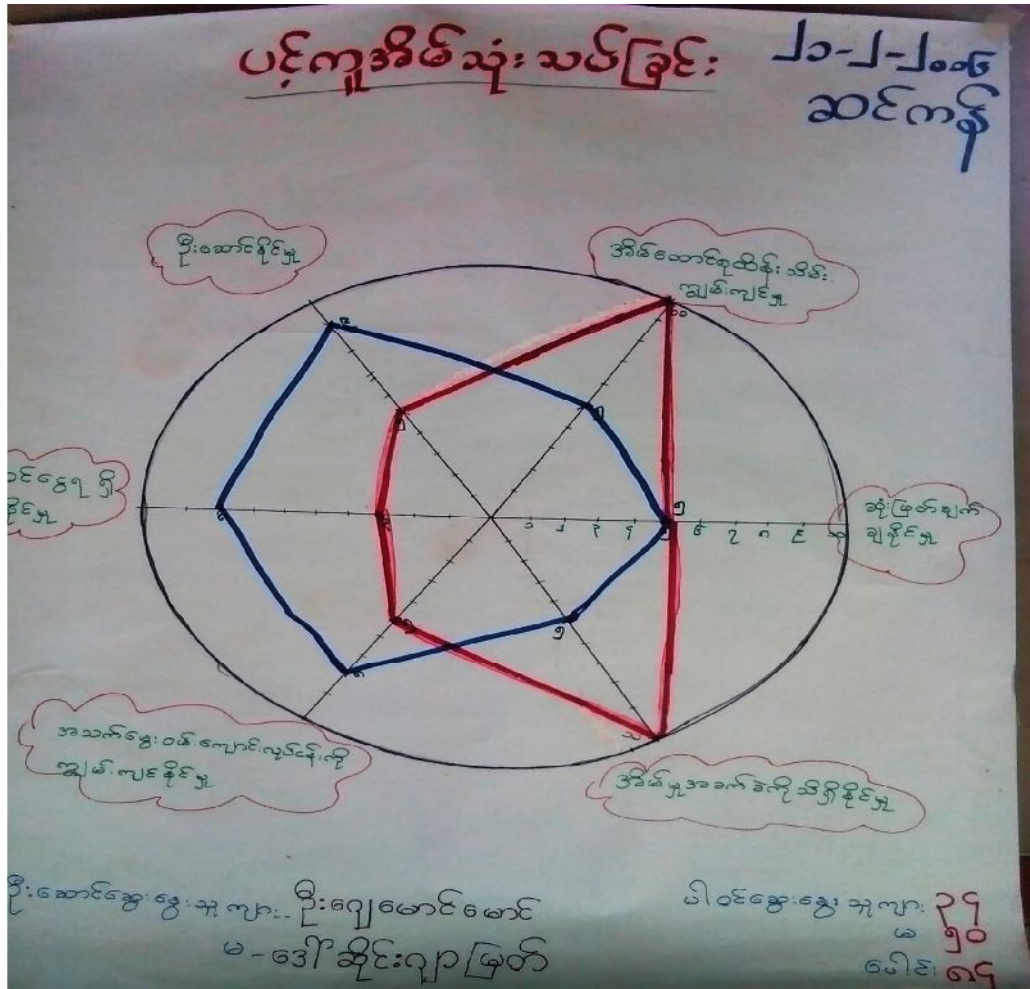 ပင့်ကူအိမ်သုံးသပ်ခြင်း
၂၁-၂-၂၀၁၆
ဆင်ကန်
ဦးဆောင်နိုင်မှု
အိမ်ထောင်စုထိန်းသိမ်း
ကျွမ်းကျင်မှု
ဝင်ငွေရရှိ
နိုင်မှု
ဆုံးဖြတ်ချက်
ချနိုင်မှု
၁ ၂ ၃ ၄ ၅ ၆ ၇ ၈ ၉ ၁၀
အသက်မွေးဝမ်းကျောင်းလုပ်ငန်းကို
ကျွမ်းကျင်နိုင်မှု
အိမ်မှုအခက်ခဲကိုသိရှိနိုင်မှု
ဦးဆောင်ဆွေးနွေးသူကျား- ဦးဂျေမောင်မောင်
မ-ဒေါ်ဆိုင်းဂျာဖြတ်
ပါဝင်ဆွေးနွေးသူကျား ၃၄
မ ၅၀
ပေါင်း ၈၄